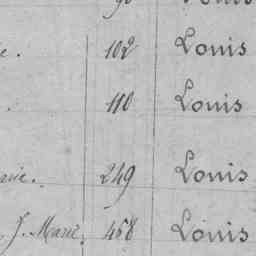 90 Louis
e. 102 Louis
. 110 Louis
arie. 249 Louis
J. Marie. 458 Louis